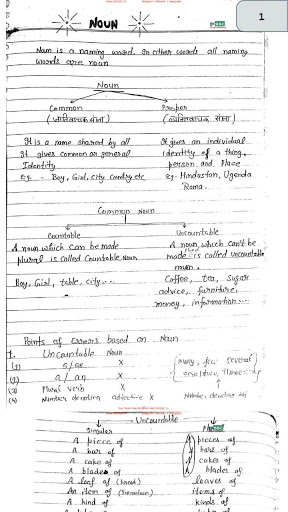 1
NOUN
Noun is a naming word. In other words all naming
words are noun
Noun
Common
Proper
(जातिवाचक संज्ञा)
(व्यक्तिवाचक संज्ञा)
It is a name shared by all
It gives common or general
Identity
eg. - Boy, Girl, city, country etc
It gives an individual
identity of a thing,
person and Place
eg. Hindustan, Uganda
Rama.
Common Noun
Countable
Uncountable
A noun which can be made
plural is called Countable Noun
Boy, Girl, table, city...
A noun which can't be
made plural is called uncountable
noun.
Coffee, tea, sugar
advice, furniture,
money, information...
Points of errors based on Noun
1. Uncountable Noun
(1) s/es X
(2) a / an X
(3) Plural verb X
(4) Number denoting adjective X
many, few, several
Number denoting adj
Uncountable
Singular
A piece of
A bar of
A cake of
A blade of
A loaf of (bread)
An item of
A kind of
pieces of
bars of
cakes of
blades of
loaves of
items of
kinds of